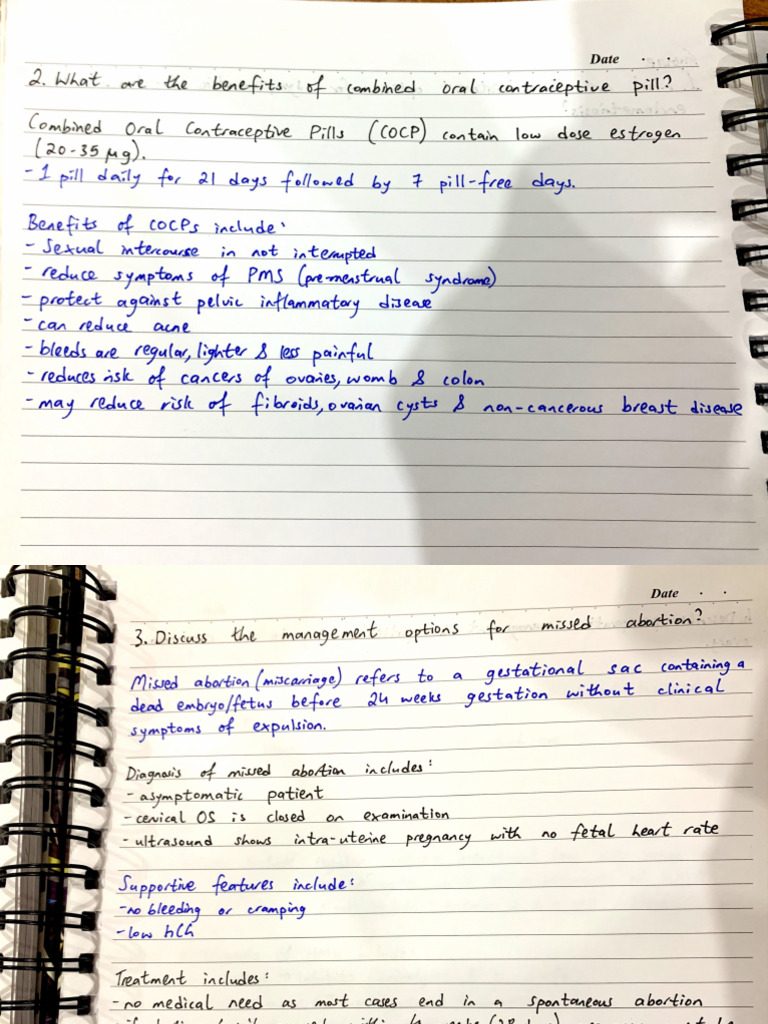 Date . .
2. What are the benefits of combined oral contraceptive pill?
Combined Oral Contraceptive Pills (COCP) contain low dose estrogen
(20-35 μg).
- 1 pill daily for 21 days followed by 7 pill-free days.
Benefits of COCPs include:
- Sexual intercourse in not interrupted
- reduce symptoms of PMS (pre-menstrual syndrome)
- protect against pelvic inflammatory disease
- can reduce acne
- bleeds are regular, lighter & less painful
- reduces risk of cancers of ovaries, womb & colon
- may reduce risk of fibroids, ovarian cysts & non-cancerous breast disease
Date . .
3. Discuss the management options for missed abortion?
Missed abortion (miscarriage) refers to a gestational sac containing a
dead embryo/fetus before 24 weeks gestation without clinical
symptoms of expulsion.
Diagnosis of missed abortion includes:
- asymptomatic patient
- cervical OS is closed on examination
- ultrasound shows intra-uterine pregnancy with no fetal heart rate
Supportive features include:
- no bleeding or cramping
- low hCG
Treatment includes:
- no medical need as most cases end in a spontaneous abortion